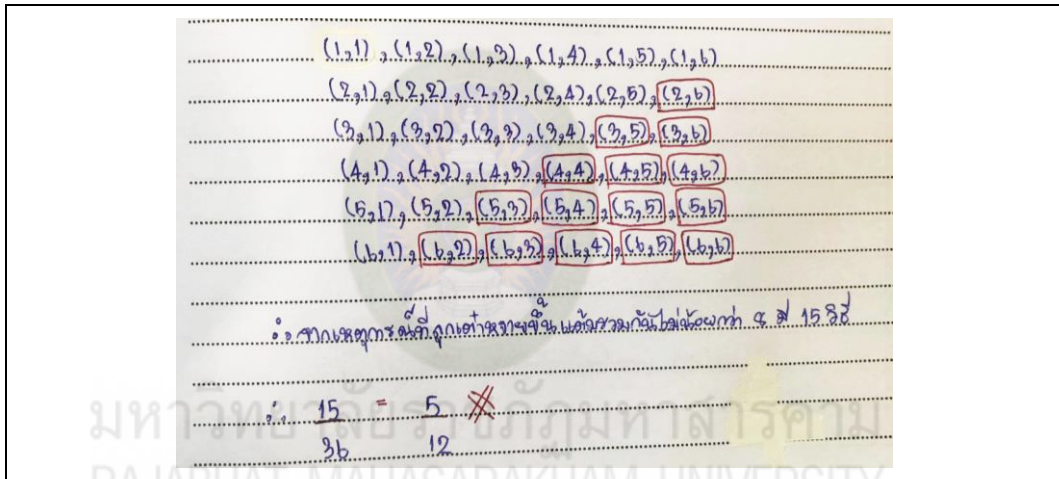 (1,1),(1,2),(1,3),(1,4),(1,5),(1,6)
(2,1),(2,2),(2,3),(2,4),(2,5),(2,6)
(3,1),(3,2),(3,3),(3,4),(3,5),(3,6)
(4,1),(4,2),(4,3),(4,4),(4,5),(4,6)
(5,1),(5,2),(5,3),(5,4),(5,5),(5,6)
(6,1),(6,2),(6,3),(6,4),(6,5),(6,6)
∴ จากเหตุการณ์ที่ลูกเต๋าหงายขึ้นแต้มรวมกันไม่น้อยกว่า 8 มี 15 วิธี
∴ 15/36 = 5/12
มหาวิทยาลัยราชภัฏมหาสารคาม
RAJABHAT MAHASARAKHAM UNIVERSITY